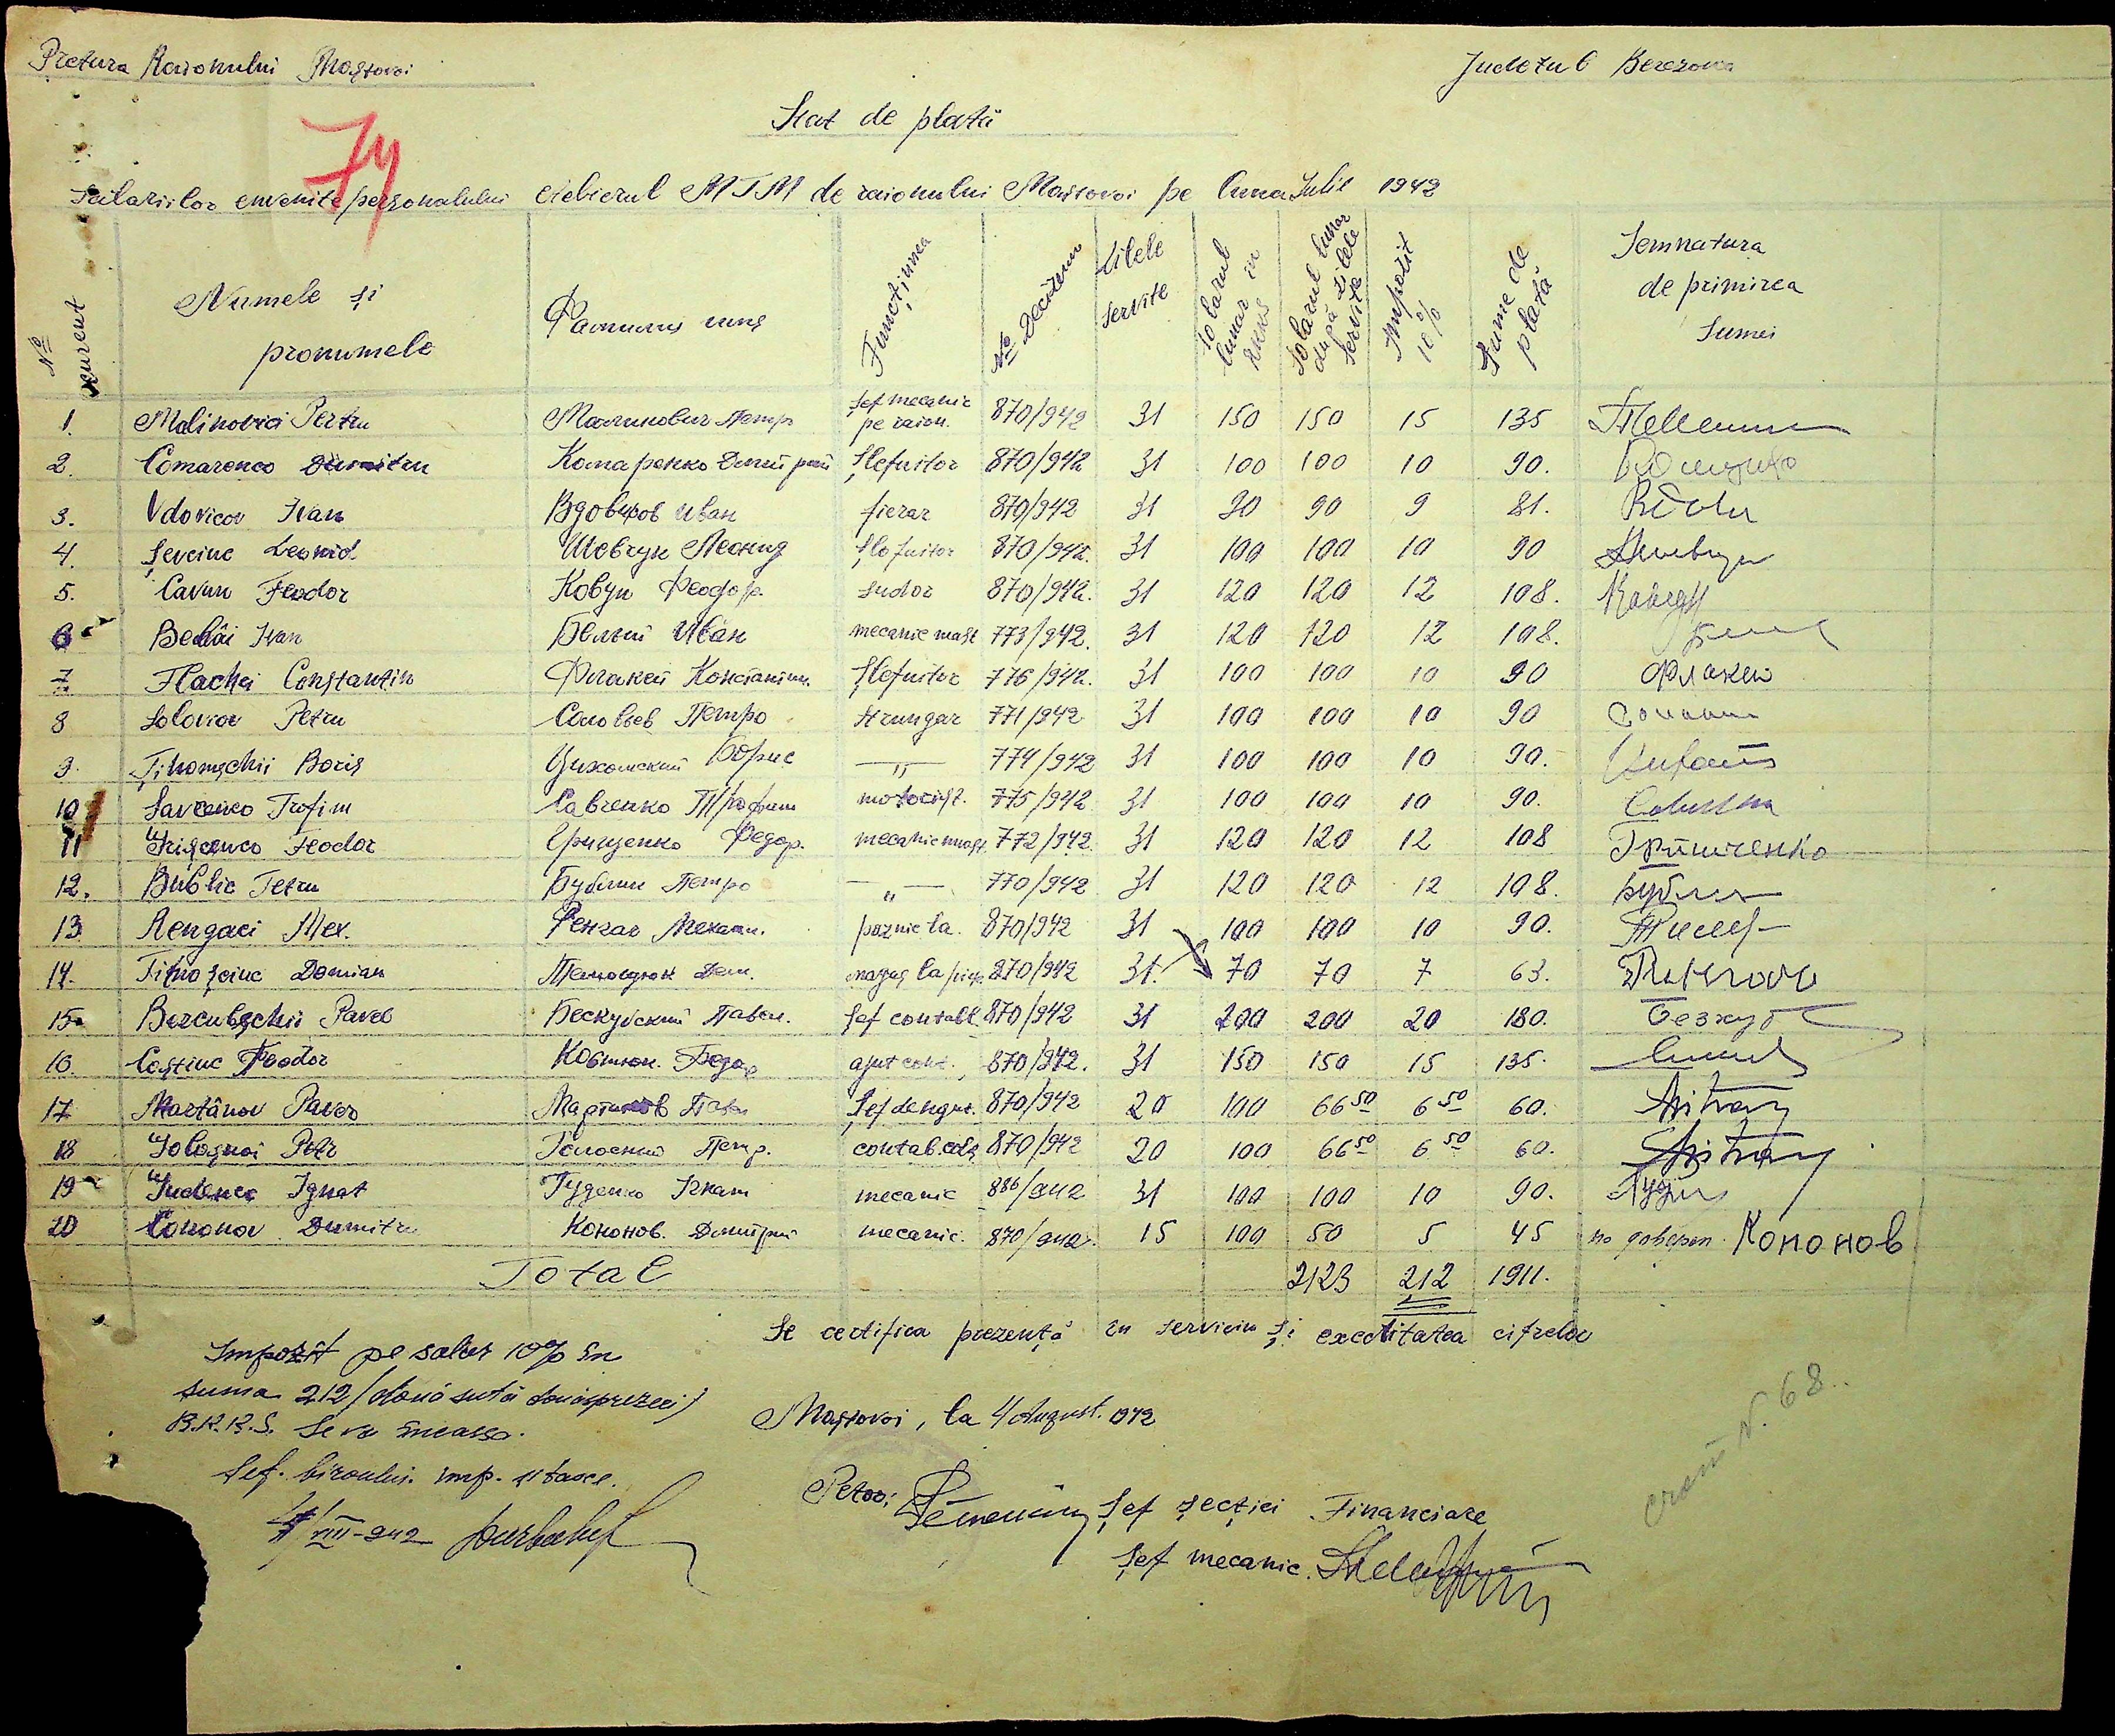 Pretura Raionului Mostovoi
Judetul Berezovca
74
Stat de plată
Salariilor cuvenite personalului atelierul MTM de raionului Mostovoi pe luna Iulie 1942
№ curent Numele și pronumele Фамилия имя Funcțiunea № Deciziun Zilele servite Solarul lunar in RKKS Solarul lunar după zilele servite Impozit 10% Sume de plată Semnatura de primirea sumei
1. Malinovici Pertru Малинович Петр șef mecanic pe raion. 870/942 31 150 150 15 135
2. Comarenco Dumitru Комаренко Дмитрий Șlefuitor 870/942 31 100 100 10 90.
3. Vdovicov Ivan Вдовиков Иван fierar 870/942 31 90 90 9 81.
4. Șevciuc Leonid Шевчук Леонид Șlefuitor 870/942. 31 100 100 10 90
5. Cavun Feodor Ковун Феодор. sudor 870/942. 31 120 120 12 108.
6 Belâi Ivan Белый Иван mecanic mast 773/942. 31 120 120 12 108.
7. Flachei Constantin Флакей Константин. Șlefuitor 776/942. 31 100 100 10 90 Флакей
8 Soloviov Petru Соловьев Петро Strungar 771/942 31 100 100 10 90
9. Țihomschii Boris Цихомский Борис —„— 774/942 31 100 100 10 90.
10 Savcenco Trofim Савченко Трофим motocist. 775/942 31 100 100 10 90.
11 Grișcenco Feodor Грищенко Федор. mecanic mast. 772/942. 31 120 120 12 108 Грищенко
12. Bublic Petru Бублик Петро —„— 770/942 31 120 120 12 108. Бублик
13. Rengaci Mex. Ренгач Механ. paznic la. 870/942 31 100 100 10 90.
14. Timoșciuc Domian Тимощук Дем. 870/942 31. 70 70 7 63.
15. Bezcubschii Pavel Бескубский Павел. Șef contabl. 870/942 31 200 200 20 180. Безкуб
16. Costiuc Feodor Костюк. Федор ajut cont. 870/942. 31 150 150 15 135.
17 Martânov Pavel Мартынов Павел 870/942 20 100 66 50 6 50 60.
18 Golosnoi Petr Голосной Петр. contab. 870/942 20 100 66 50 6 50 60.
19 Gudenco Ignat Гуденко Игнат mecanic 886/942 31 100 100 10 90.
20 Cononov Dumitru Кононов. Дмитрий mecanic. 870/942. 15 100 50 5 45 по доверен. Кононов
Total 2123 212 1911.
Se certifica prezență in serviciu și exactitatea cifrelor
Impozit pe salar 10% în
suma 212 /două sută douăsprezeci/
R.K.K.S. Se va încassa.
Șef. biroului. imp. și taxe.
4/VIII-942
Mostovoi, la 4 August. 1942
Pretor;
Șef secției Financiare
Șef mecanic.
N. 68.